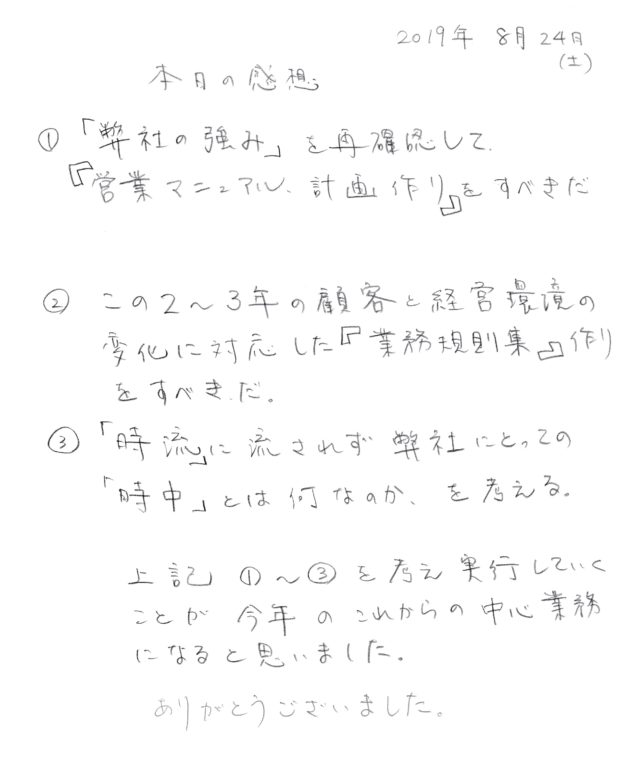 2019年 8月24日
(土)
本日の感想
① 「弊社の強み」を再確認して、
『営業マニュアル、計画作り』をすべきだ
② この2〜3年の顧客と経営環境の
変化に対応した『業務規則集』作り
をすべきだ。
③ 「時流」に流されず弊社にとっての
「時中」とは何なのか、を考える。
上記①〜③を考え実行していく
ことが今年のこれからの中心業務
になると思いました。
ありがとうございました。